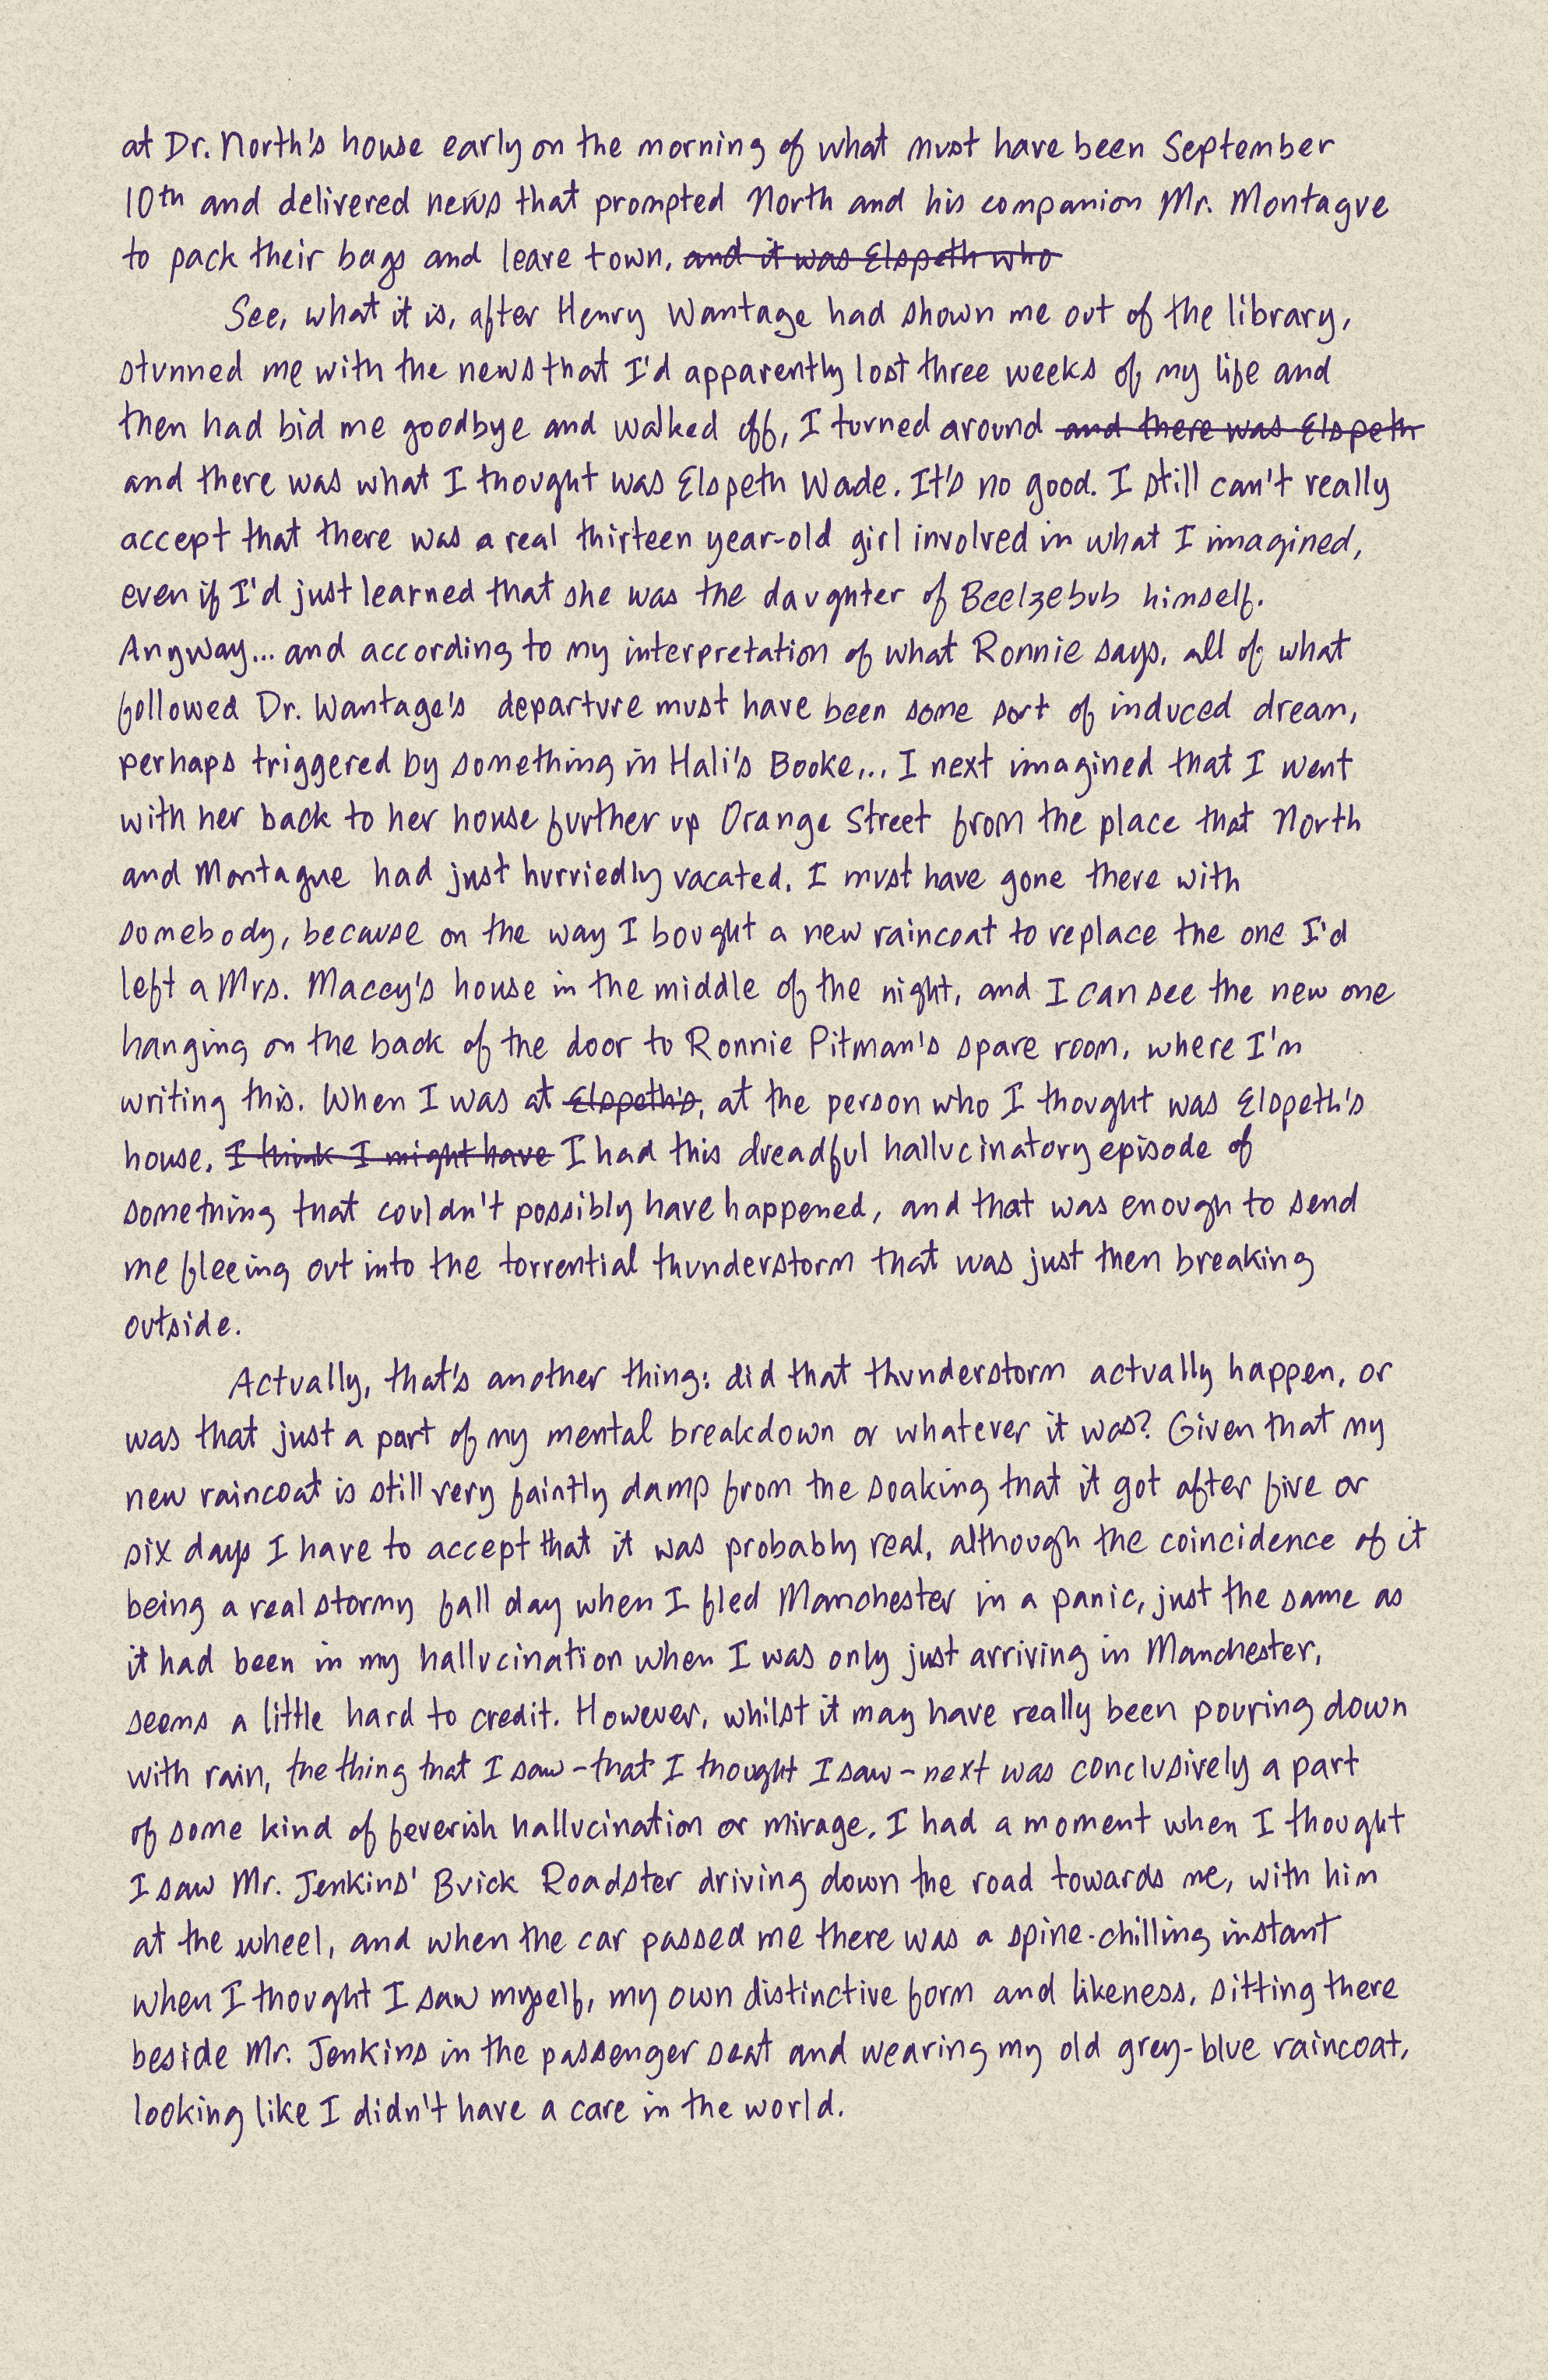 at Dr. North's house early on the morning of what must have been September
10th and delivered news that prompted North and his companion Mr. Montague
to pack their bags and leave town, and it was Elspeth who
See, what it is, after Henry Wantage had shown me out of the library,
stunned me with the news that I'd apparently lost three weeks of my life and
then had bid me goodbye and walked off, I turned around and there was Elspeth
and there was what I thought was Elspeth Wade. It's no good. I still can't really
accept that there was a real thirteen year-old girl involved in what I imagined,
even if I'd just learned that she was the daughter of Beelzebub himself.
Anyway... and according to my interpretation of what Ronnie says, all of what
followed Dr. Wantage's departure must have been some sort of induced dream,
perhaps triggered by something in Hali's Booke... I next imagined that I went
with her back to her house further up Orange Street from the place that North
and Montague had just hurriedly vacated. I must have gone there with
somebody, because on the way I bought a new raincoat to replace the one I'd
left a Mrs. Macey's house in the middle of the night, and I can see the new one
hanging on the back of the door to Ronnie Pitman's spare room, where I'm
writing this. When I was at Elspeth's, at the person who I thought was Elspeth's
house, I think I might have I had this dreadful hallucinatory episode of
something that couldn't possibly have happened, and that was enough to send
me fleeing out into the torrential thunderstorm that was just then breaking
outside.
Actually, that's another thing: did that thunderstorm actually happen, or
was that just a part of my mental breakdown or whatever it was? Given that my
new raincoat is still very faintly damp from the soaking that it got after five or
six days I have to accept that it was probably real, although the coincidence of it
being a real stormy fall day when I fled Manchester in a panic, just the same as
it had been in my hallucination when I was only just arriving in Manchester,
seems a little hard to credit. However, whilst it may have really been pouring down
with rain, the thing that I saw – that I thought I saw – next was conclusively a part
of some kind of feverish hallucination or mirage. I had a moment when I thought
I saw Mr. Jenkins' Buick Roadster driving down the road towards me, with him
at the wheel, and when the car passed me there was a spine-chilling instant
when I thought I saw myself, my own distinctive form and likeness, sitting there
beside Mr. Jenkins in the passenger seat and wearing my old grey-blue raincoat,
looking like I didn't have a care in the world.